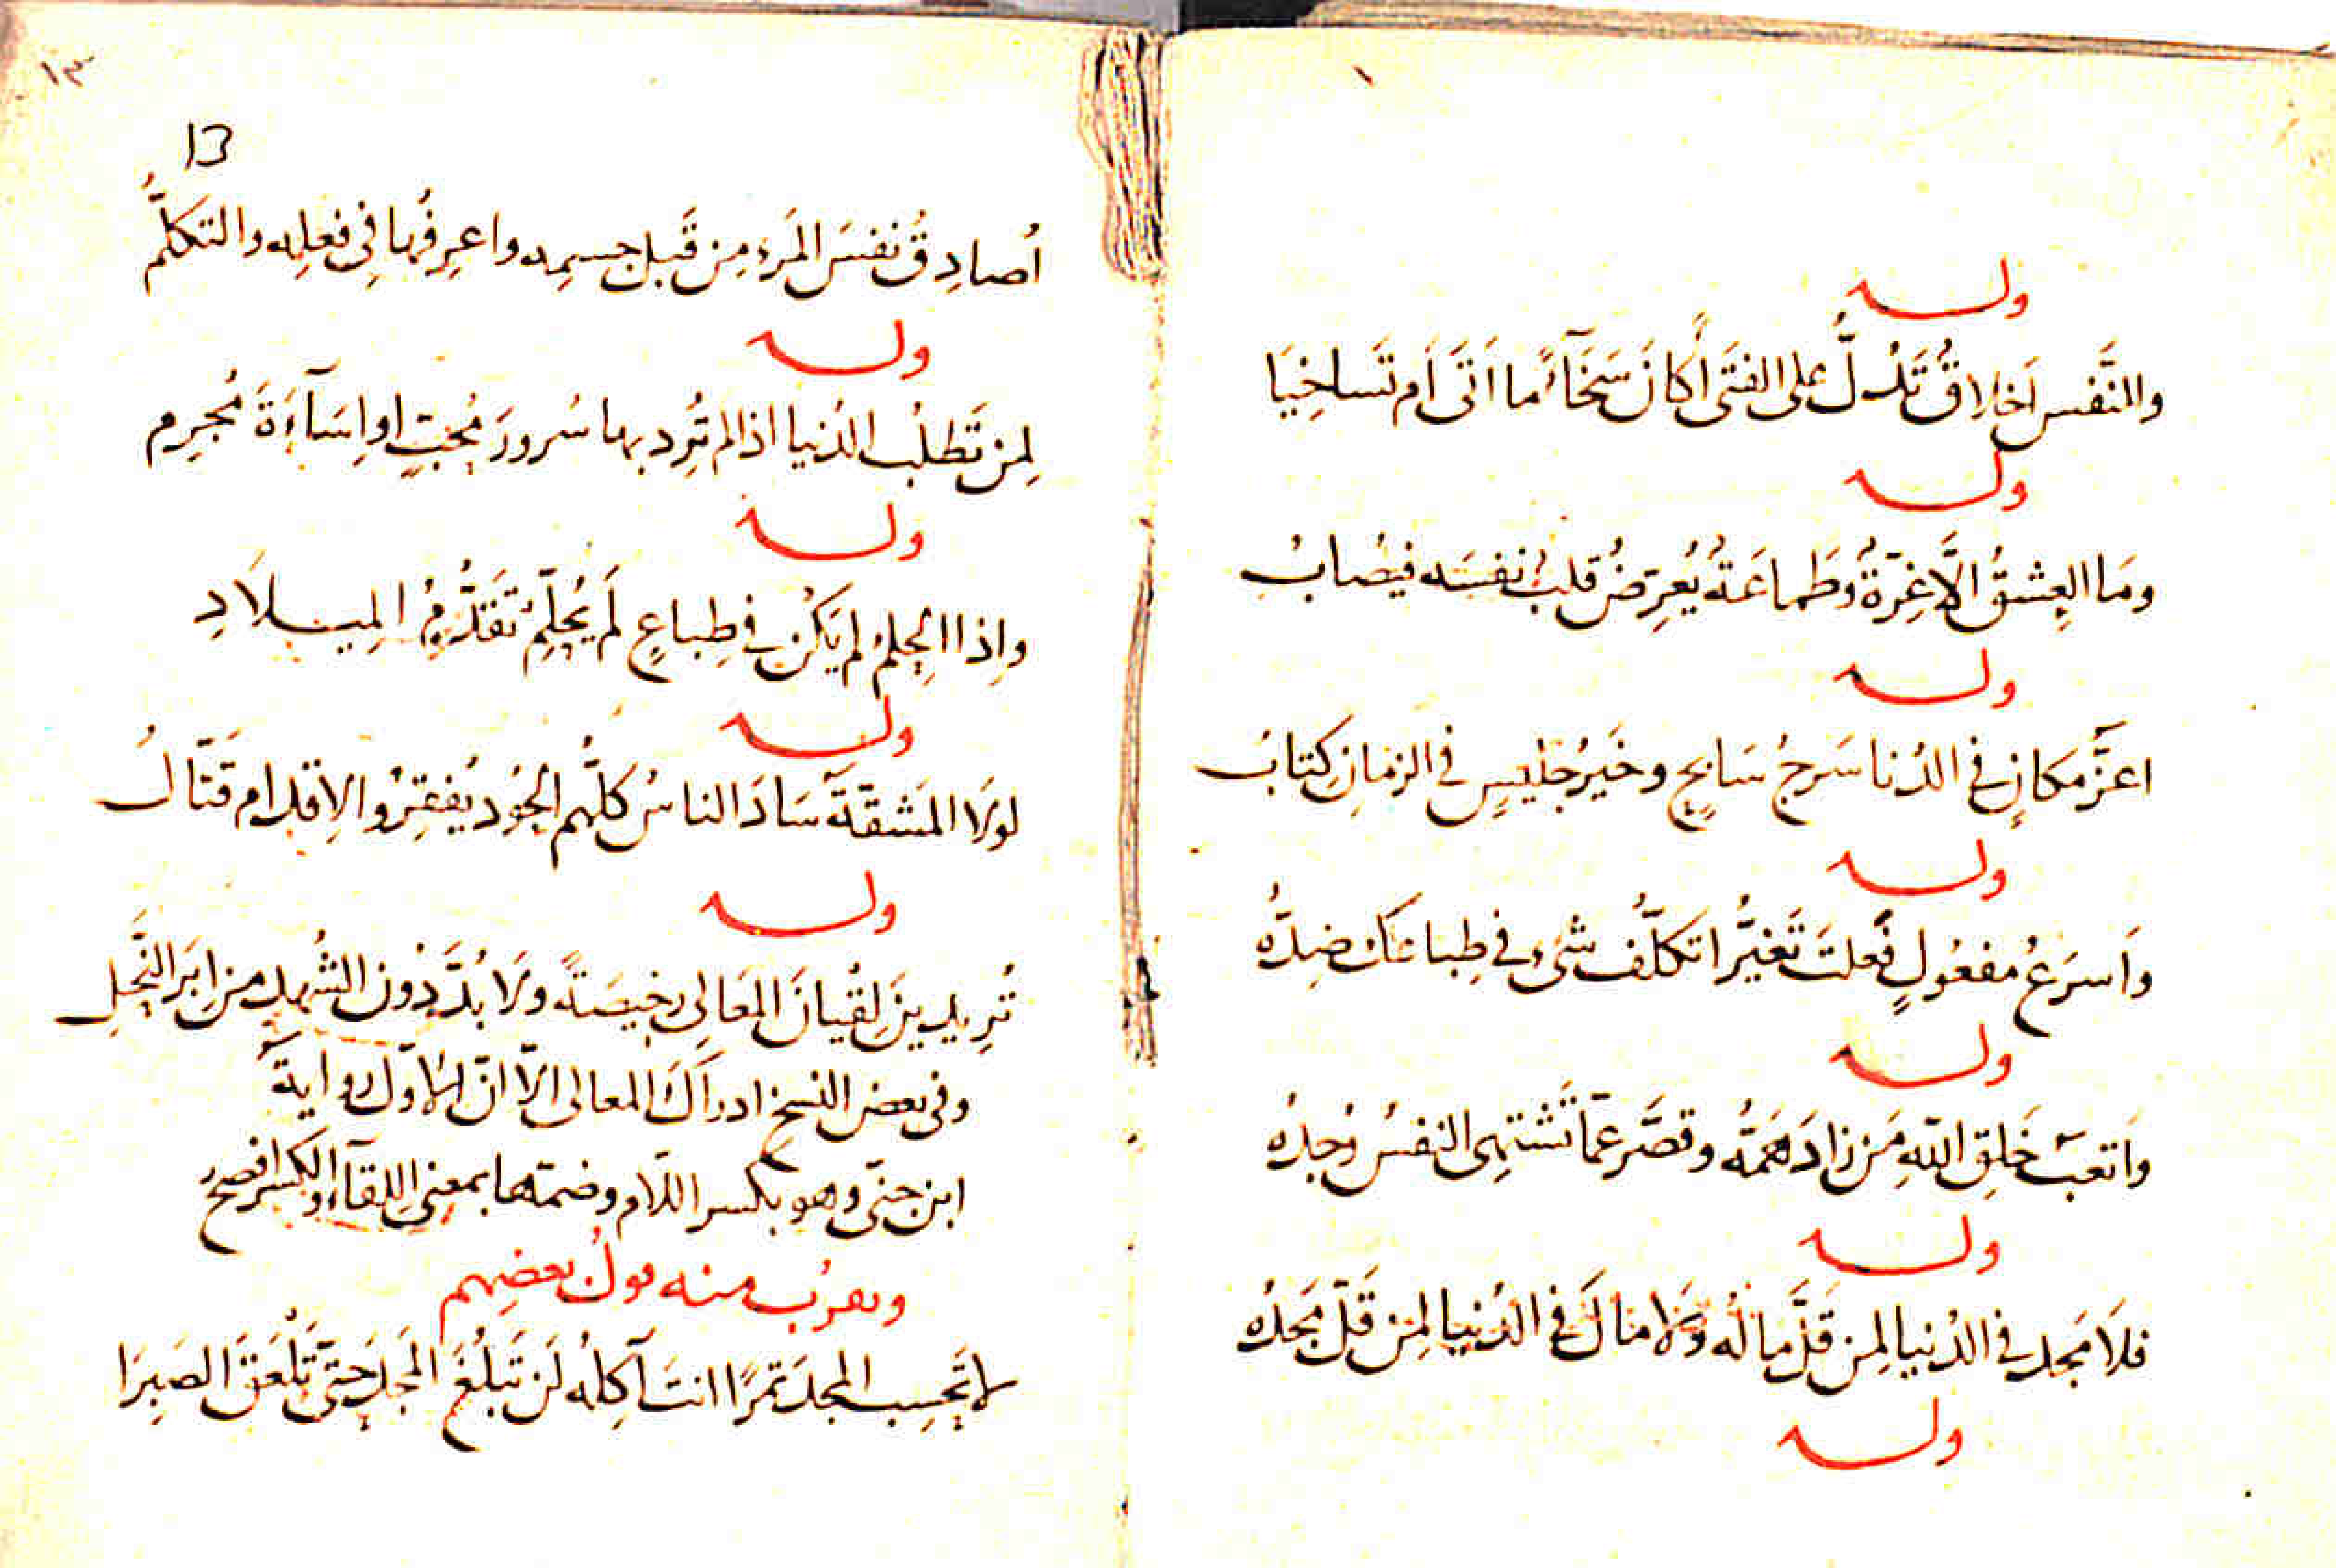 وله
والنَّفسِ اَخلاقٌ تَدُلُّ على الفتَى اَكانَ سَخَآءً ما اَتَى اَم تَساخِيَا
وله
ومَا العِشقُ الَّا غِرّةٌ وطَماعَةٌ يُعرِضُ قلبٌ نفسَه فيُصابُ
وله
اعزُّ مكانٍ في الدُنا سَرجُ سَابِحٍ وخَيرُ جليسٍ في الزمانِ كتابُ
وله
وَاَسرَعُ مفعُولٍ فَعلتَ تَغيُّرا تكلّفُ شيءٍ في طِباعك ضِدُّه
وله
وَاَتعبُ خَلقِ اللهِ مَن زادَ هَمُّه وقصَّر عمّا تَشتهى النفسُ وُجدُه
وله
فلَا مَجد في الدُنيا لِمن قَلَّ مالُه وَلا مالَ في الدُنيا لِمن قَلّ مَجدُه
وله
١٣
13
اُصادِقُ نفسَ المَرءِ مِن قَبل جسمِه واعرِفُها في فعلِه والتكلُّمِ
وله
لِمن تَطلُب الدُنيا اذا لم تُرِد بها سُرورَ مُحبٍّ او اِسَآءَةَ مُجرِم
وله
واِذا الحِلمُ لم يَكُن في طِباعٍ لَم يُحلِّم تَقَدُّمُ المِيلَادِ
وله
لولَا المَشقّةُ سَادَ الناسُ كلُّهم الجُود يُفقِرُ والاِقدام قَتّالُ
وله
تُرِيدينَ لِقُيانَ المَعَالِي رخيصَةً ولَا بُدَّ دُون الشُهدِ من اِبَر النَّحلِ
وفى بعض النسخ ادراكَ المعالى الّا انّ الاوّل رواية
ابن جنّى وهو بكسر اللّام وضمّها بمعنى اللِقآء والكسر افصح
ويقرُب منه قولُ بعضِهم
لا تَحسِب المجدَ تمرًا انتَ آكِلُه لَن تَبلُغَ المَجدَ حتّى تَلْعَقَ الصَبِرَا